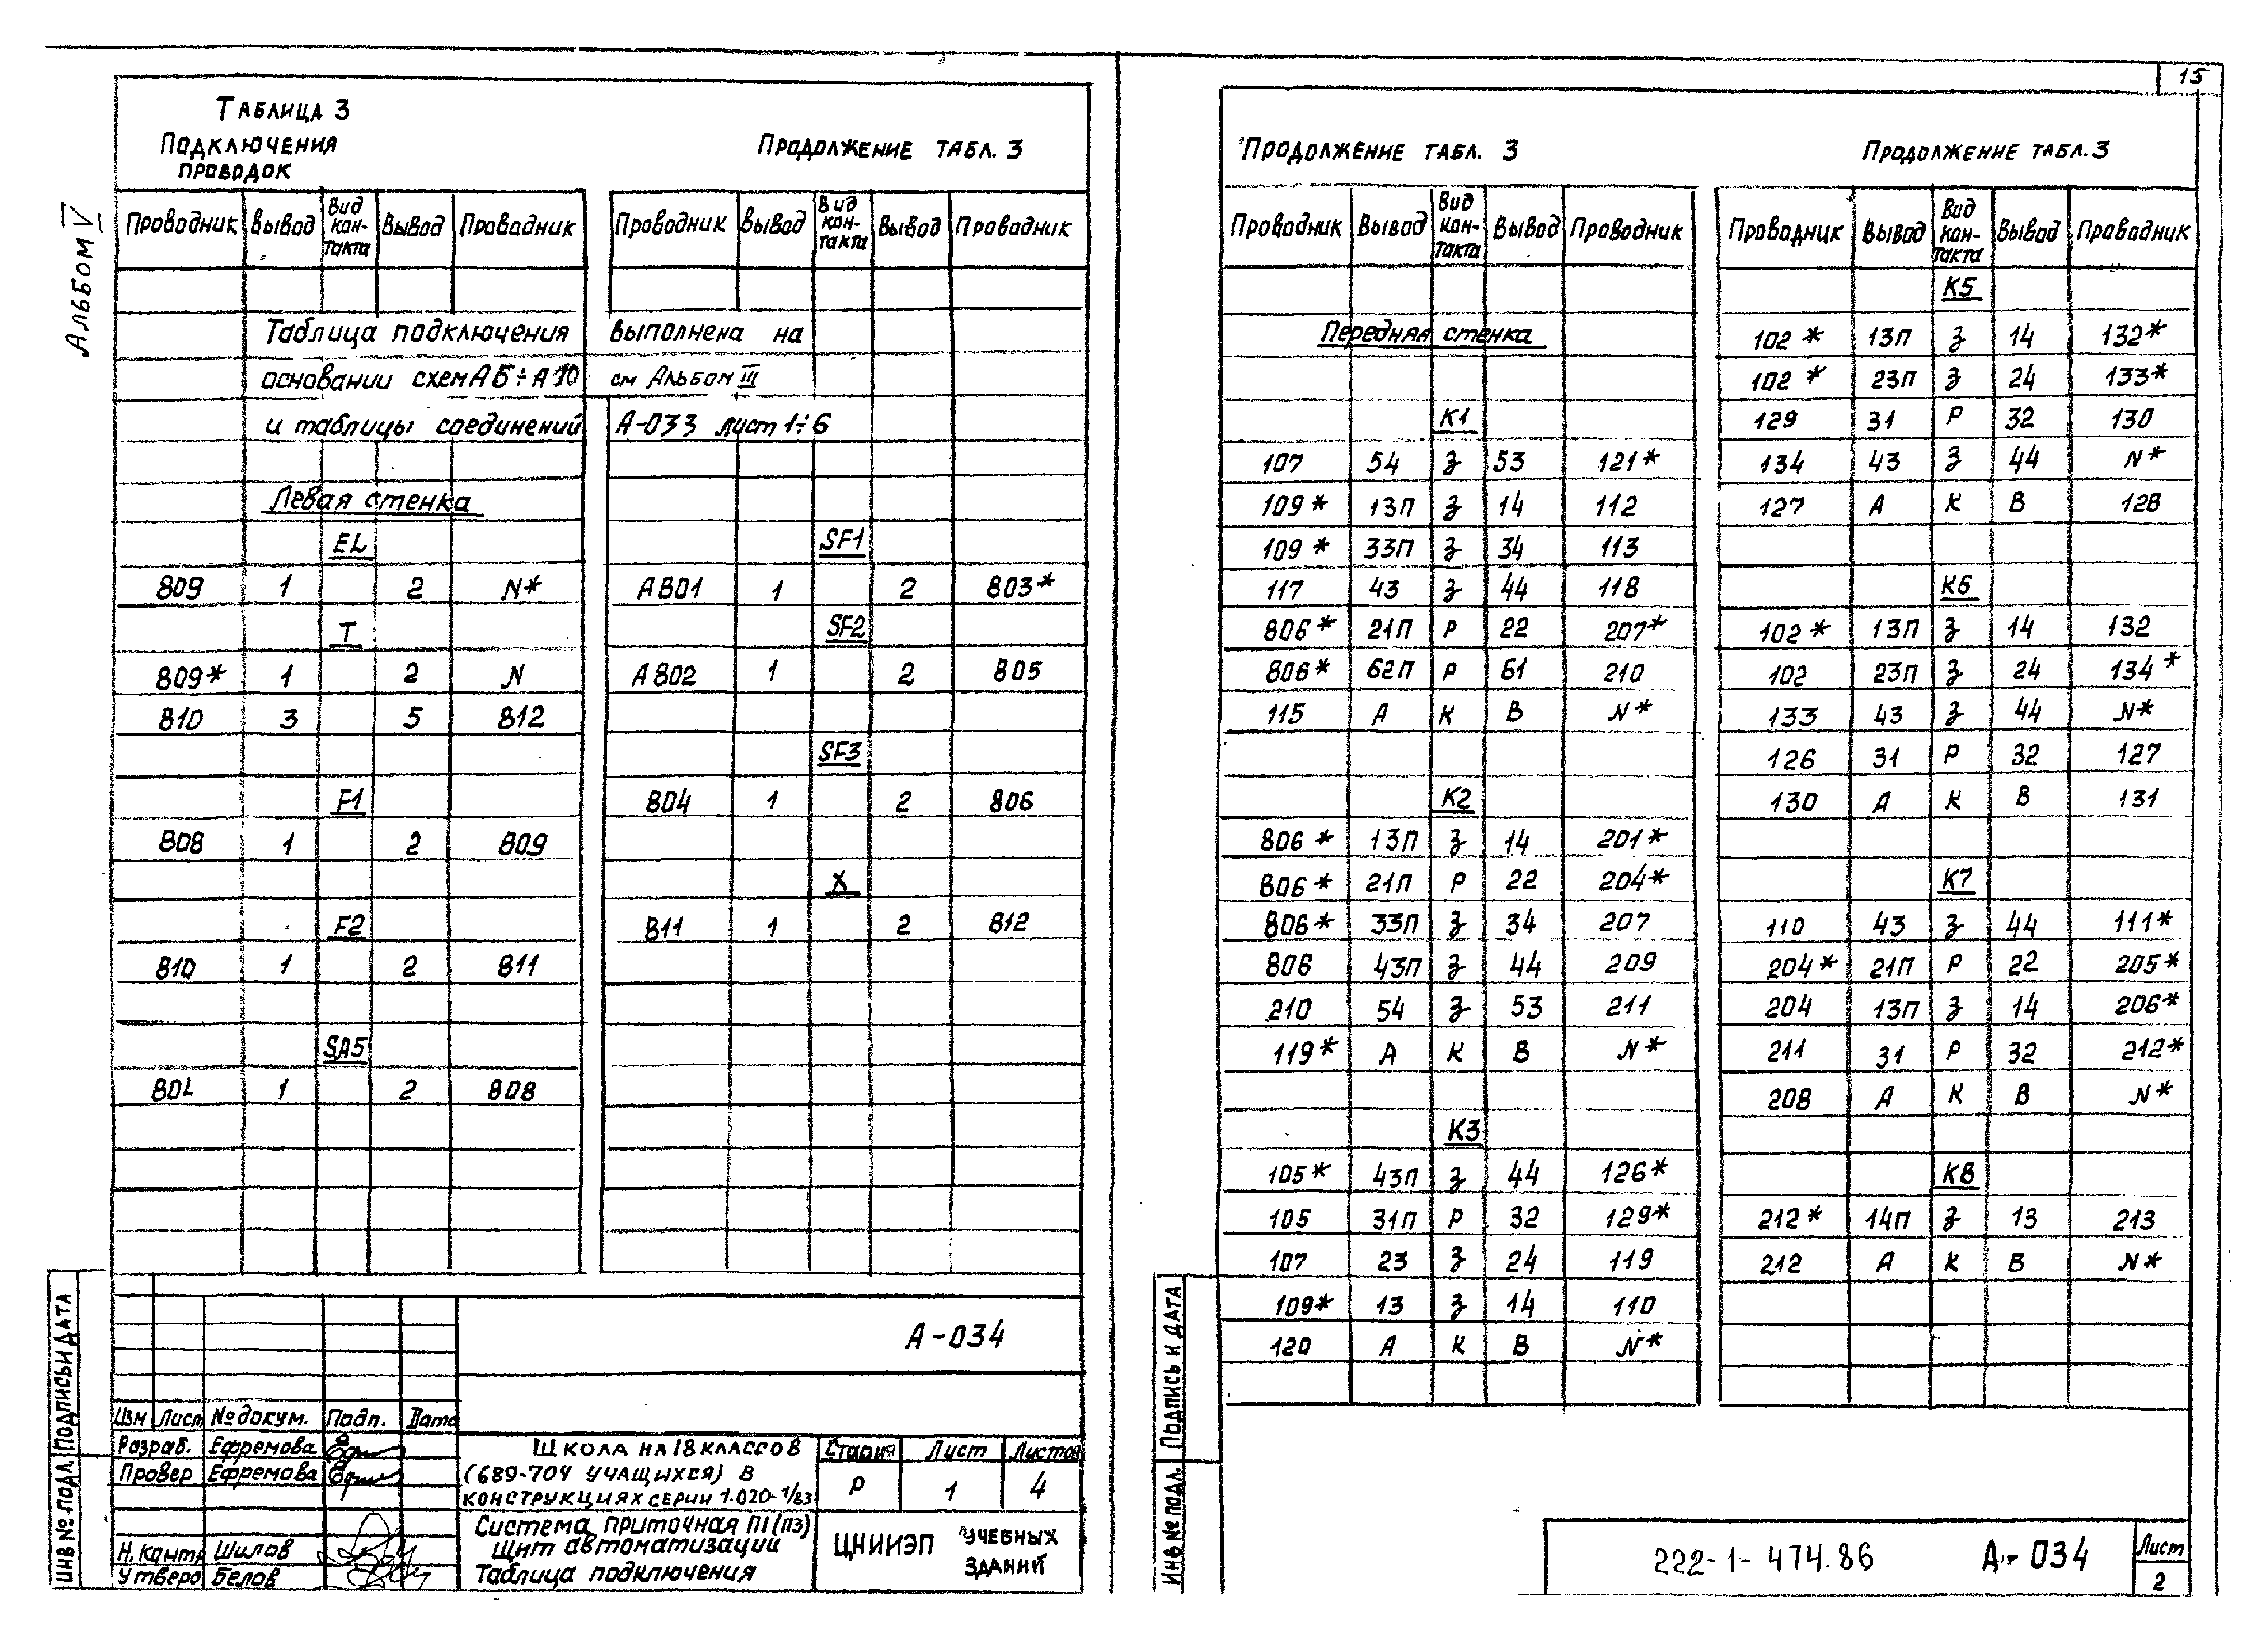 15
Альбом V
Таблица 3
Подключения
проводок
Проводник Вывод Вид кон-такта Вывод Проводник
Таблица подключения выполнена на
основании схем А5÷А10 см Альбом III
и таблицы соединений А-033 лист 1÷6
Левая стенка
EL
809 1 2 N*
T
809* 1 2 N
810 3 5 812
F1
808 1 2 809
F2
810 1 2 811
SA5
804 1 2 808
Продолжение табл. 3
Проводник Вывод Вид кон-такта Вывод Проводник
SF1
А801 1 2 803*
SF2
А802 1 2 805
SF3
804 1 2 806
X
811 1 2 812
А-034
Изм Лист № докум. Подп. Дата
Разраб. Ефремова
Провер Ефремова
Н. контр Шилов
Утверд Белов
Школа на 18 классов
(689-704 учащихся) в
конструкциях серии 1.020-1/83
Система приточная П1(П3)
Щит автоматизации
Таблица подключения
Стадия Лист Листов
Р 1 4
ЦНИИЭП учебных
зданий
Инв № подл. Подпись и дата
Продолжение табл. 3
Проводник Вывод Вид кон-такта Вывод Проводник
Передняя стенка
К1
107 54 З 53 121*
109* 13П З 14 112
109* 33П З 34 113
117 43 З 44 118
806* 21П Р 22 207*
806* 62П Р 61 210
115 А К В N*
К2
806* 13П З 14 201*
806* 21П Р 22 204*
806* 33П З 34 207
806 43П З 44 209
210 54 З 53 211
119* А К В N*
К3
105* 43П З 44 126*
105 31П Р 32 129*
107 23 З 24 119
109* 13 З 14 110
120 А К В N*
Продолжение табл. 3
Проводник Вывод Вид кон-такта Вывод Проводник
К5
102* 13П З 14 132*
102* 23П З 24 133*
129 31 Р 32 130
134 43 З 44 N*
127 А К В 128
К6
102* 13П З 14 132
102 23П З 24 134*
133 43 З 44 N*
126 31 Р 32 127
130 А К В 131
К7
110 43 З 44 111*
204* 21П Р 22 205*
204 13П З 14 206*
211 31 Р 32 212*
208 А К В N*
К8
212* 14П З 13 213
212 А К В N*
Инв № подл. Подпись и дата
222-1-474.86 А-034 Лист
2